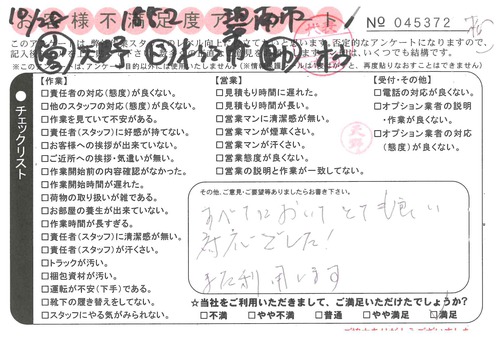 お客様不満足度アンケート!
10/28 1852 碧南市
№ 045372
天野
※このアンケートは
【作業】
□責任者の対応(態度)が良くない。
□他のスタッフの対応(態度)が良くない。
□作業を見ていて不安がある。
□責任者(スタッフ)に好感が持てない。
□お客様への挨拶が出来ていない。
□ご近所への挨拶・気遣いが無い。
□作業開始前の内容確認がなかった。
□作業開始時間が遅れた。
□荷物の取り扱いが雑である。
□お部屋の養生が出来ていない。
□作業時間が長すぎる。
□責任者(スタッフ)に清潔感が無い。
□責任者(スタッフ)が汗くさい。
□トラックが汚い。
□梱包資材が汚い。
□運転が不安(下手)である。
□靴下の履き替えをしてない。
□スタッフにやる気がみられない。
●チェックリスト
【営業】
□見積もり時間に遅れた。
□見積もり時間が長い。
□営業マンに清潔感が無い。
□営業マンが煙草くさい。
□営業マンが汗くさい。
□営業態度が良くない。
□営業の説明と作業が一致してない。
【受付・その他】
□電話の対応が良くない。
□オプション業者の説明
・作業が良くない。
□オプション業者の対応
(態度)が良くない。
天野
その他、ご意見・ご要望等ありましたらお書き下さい。
すべてにおいてとても良い
対応でした!
また利用します
☆当社をご利用いただきまして、ご満足いただけたでしょうか?
□不満 □やや不満 □普通 □やや満足 □満足